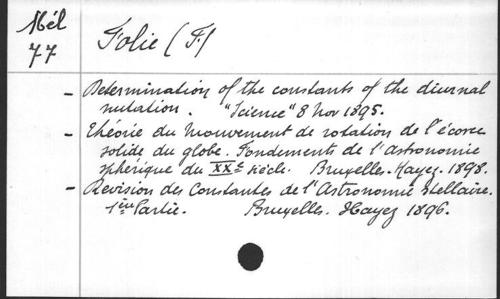 Mél
77
Folie (F)
- Determination of the constants of the diurnal
nutation. "Science" 8 Nov 1895.
- Théorie du Mouvement de rotation de l'écorce
solide du globe. Fondements de l'astronomie
sphérique du XXe siècle. Bruxelles. Hayez. 1898.
- Revision des Constantes de l'Astronomie stellaire.
1ère Partie. Bruxelles. Hayez 1896.